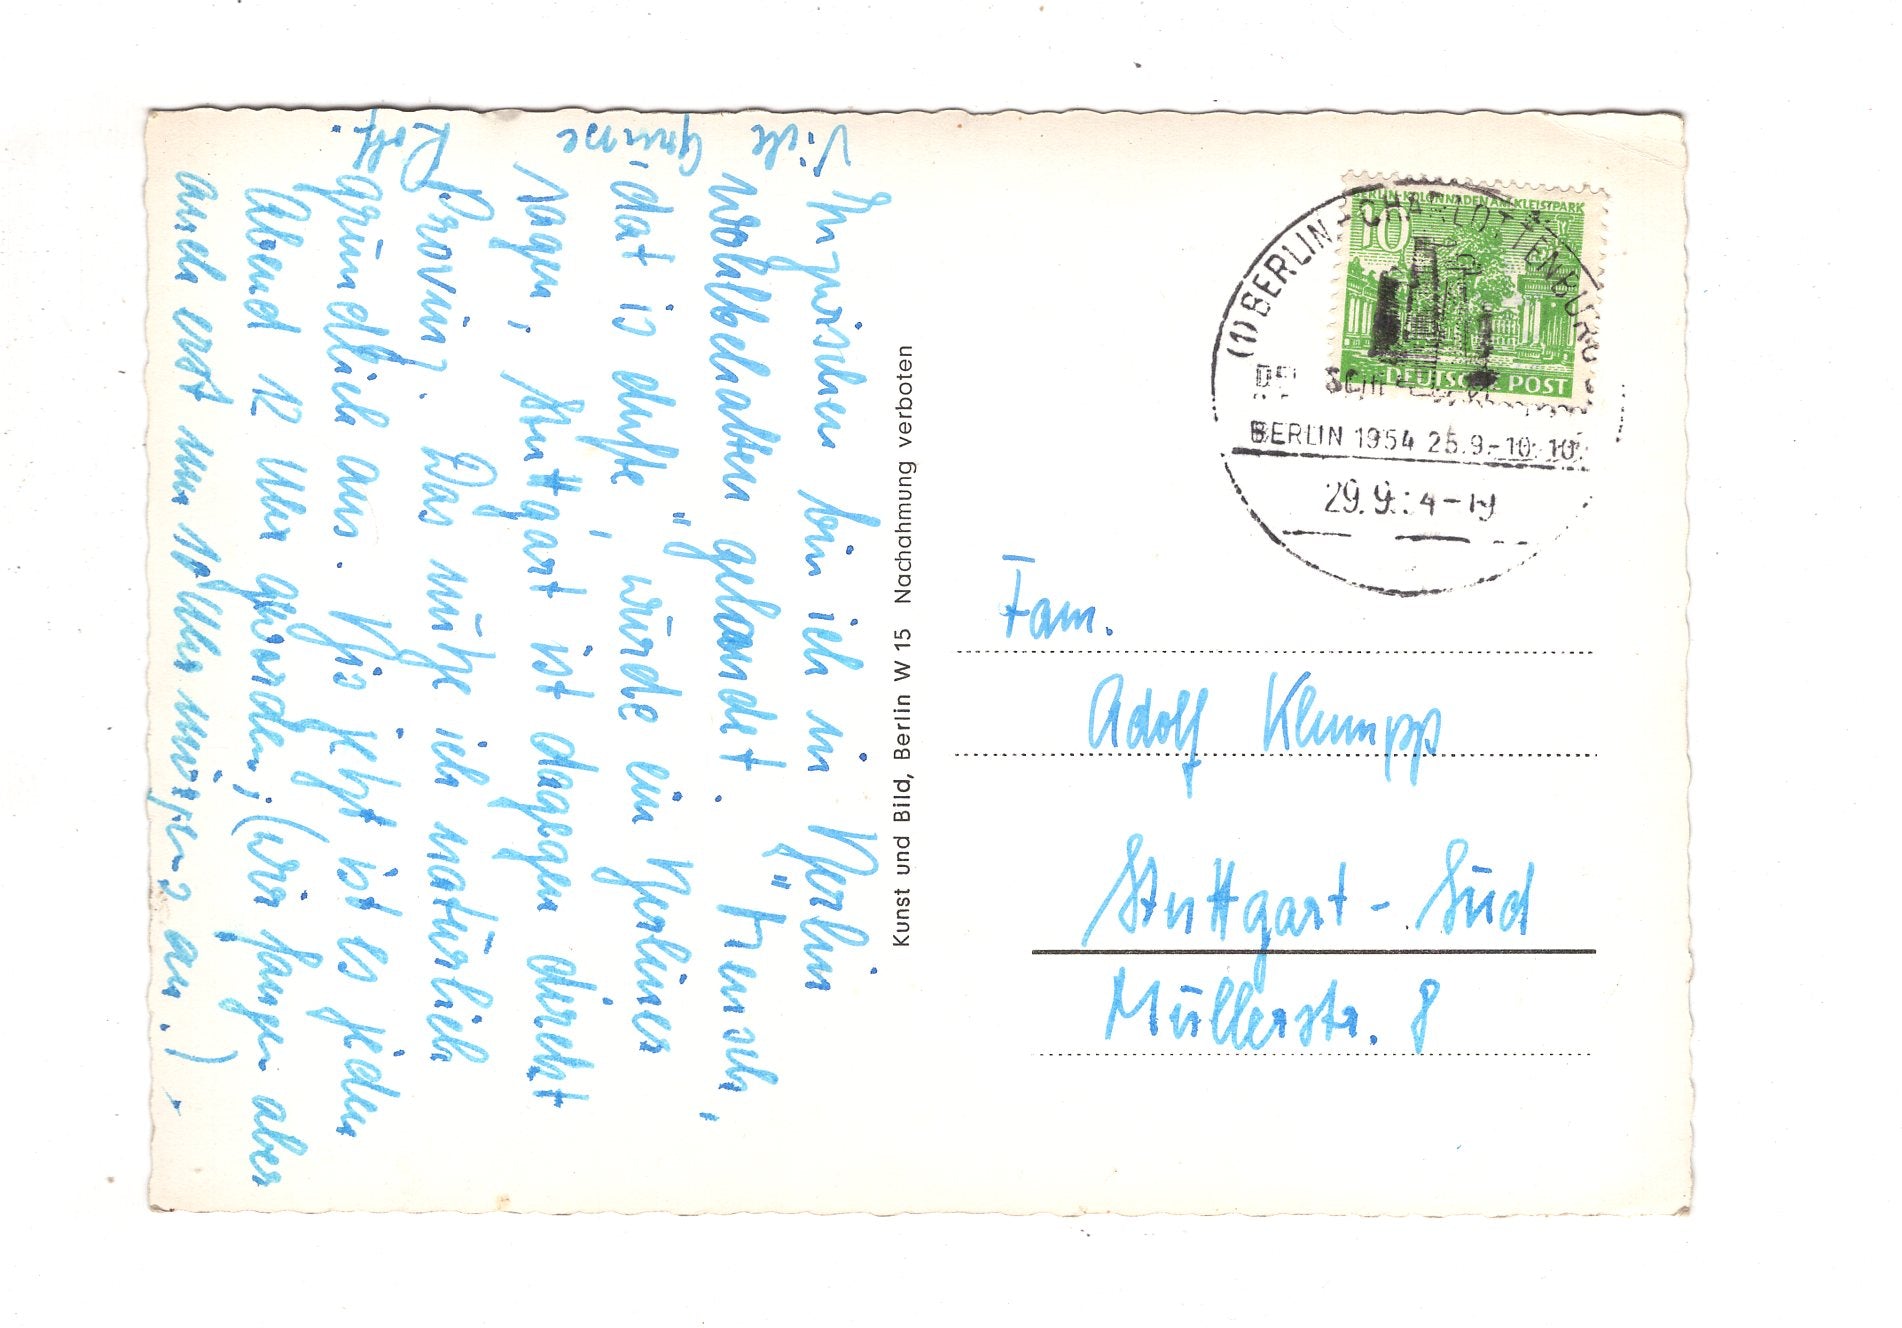 Inzwischen bin ich in Berlin
wohlbehalten gelandet. "Mensch,
dat is dufte", würde ein Berliner
sagen, Stuttgart ist dagegen direkt
Provinz. Das nütze ich natürlich
gründlich aus. Bis jetzt ist es jeden
Abend 12 Uhr geworden, (wir fangen aber
auch erst um 10 Uhr morgens an.)
Viele Grüsse
Rolf.
Kunst und Bild, Berlin W 15 Nachahmung verboten
BERLIN·KOLONNADEN AM KLEISTPARK
10
DEUTSCHE POST
(1) BERLIN-CHARLOTTENBURG
BERLIN 1954 25.9.-10.10.
29.9. 4-19
Fam.
Adolf Klumpp
Stuttgart-Süd
Müllerstr. 8